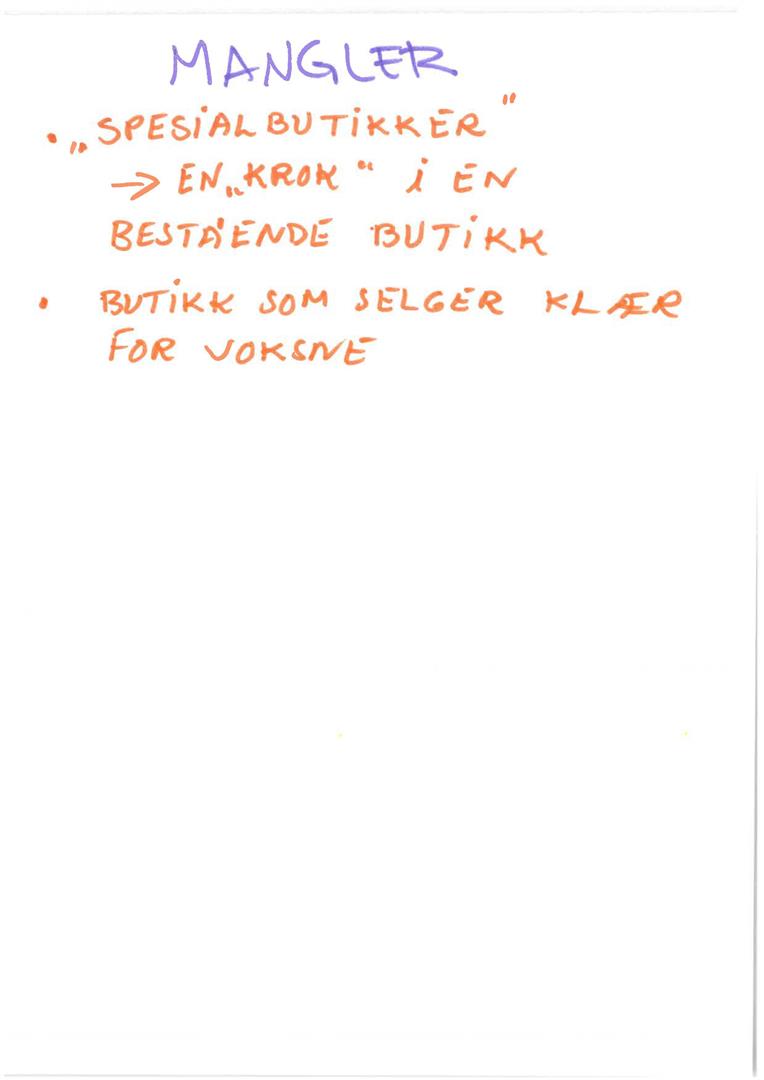 MANGLER
• „SPESIALBUTIKKER"
→ EN „KROK" i EN
BESTÅENDE BUTIKK
• BUTIKK SOM SELGER KLÆR
FOR VOKSNE